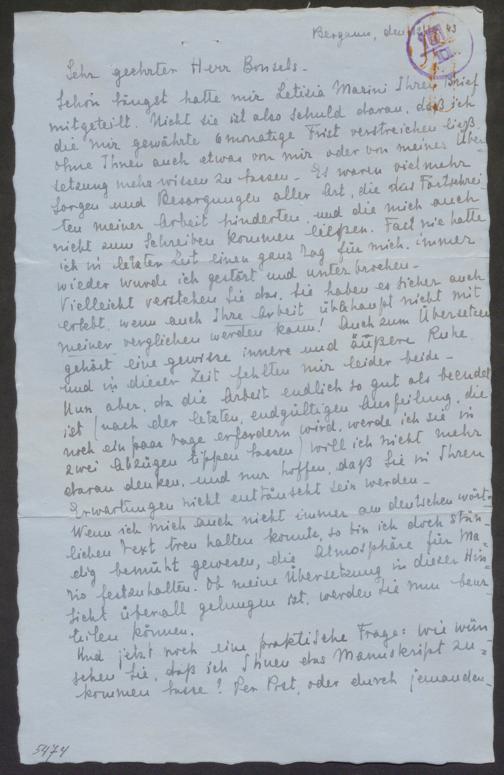 Bergamo, den 43
Sehr geehrter Herr Bonsels -
Schon längst hatte mir Letizia Marini Ihren Brief
mitgeteilt. Nicht sie ist also Schuld daran, daß ich
die mir gewährte 6monatige Frist verstreichen ließ
ohne Ihnen auch etwas von mir oder von meiner Über-
setzung mehr wissen zu lassen - Es waren vielmehr
Sorgen und Besorgungen aller Art, die das Fortschrei-
ten meiner Arbeit hinderten, und die mich auch
nicht zum Schreiben kommen ließen. Fast nie hatte
ich in letzter Zeit einen ganz Tag für mich, immer
wieder wurde ich gestört und unterbrochen -
Vielleicht verstehen Sie das, Sie haben es sicher auch
erlebt, wenn auch Ihre Arbeit überhaupt nicht mit
meiner verglichen werden kann! Auch zum Übersetzen
gehört eine gewisse innere und äußere Ruhe
und in dieser Zeit fehlten mir leider beide -
Nun aber, da die Arbeit endlich so gut als beendet
ist (nach der letzten, endgültigen Ausfeilung, die
noch ein paar Tage erfordern wird, werde ich sie in
zwei Abzügen tippen lassen) will ich nicht mehr
daran denken, und nur hoffen, daß Sie in Ihren
Erwartungen nicht enttäuscht sein werden -
Wenn ich mich auch nicht immer am deutschen wört-
lichen Text treu halten konnte, so bin ich doch stän-
dig bemüht gewesen, die Atmosphäre für Ma-
rio festzuhalten. Ob meine Übersetzung in dieser Hin-
sicht überall gelungen ist, werden Sie nun beur-
teilen können.
Und jetzt noch eine praktische Frage: wie wün-
schen Sie, daß ich Ihnen das Manuskript zu-
kommen lasse? Per Post, oder durch jemanden -
5474